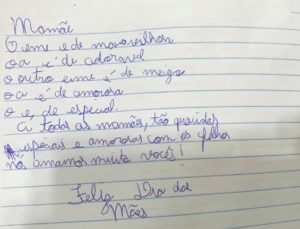 Mamãe
O eme é de maravilhosa
o a é de adoravel
o outro eme é de meiga
o a é de amorosa
o e, de especial
A todas as mamães, tão queridas
especiais e amorosas com os filhos
nós amamos muito vocês!
Feliz Dia das
Mães